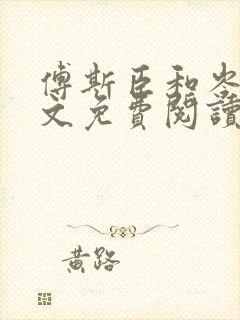 傅斯臣和岑
文免費閱讀
黃路